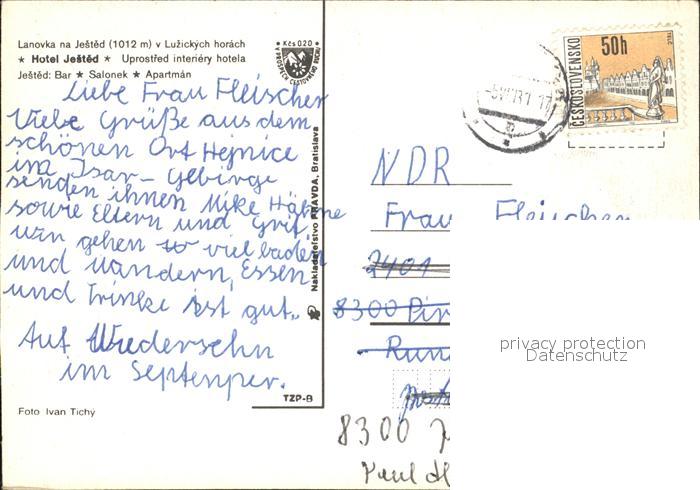 Lanovka na Ještěd (1012 m) v Lužických horách
★ Hotel Ještěd ★ Uprostřed interiéry hotela
Ještěd: Bar ★ Salonek ★ Apartmán
Kčs 020
Liebe Frau Fleischer
Viele Grüße aus dem
schönen Ort Hejnice
im Isar-Gebirge
senden ihnen Mike Hähne
sowie Eltern und Grit,
wir gehen viel baden
und wandern, Essen
und Trinke ist gut.
Auf Wiedersehn
im Septenper.
Foto Ivan Tichý
TZP-B
Nakladateľstvo PRAVDA, Bratislava
ČESKOSLOVENSKO
50h
NDR
Frau Fleischer
2401
8300 Pir
8300
Paul
privacy protection
Datenschutz